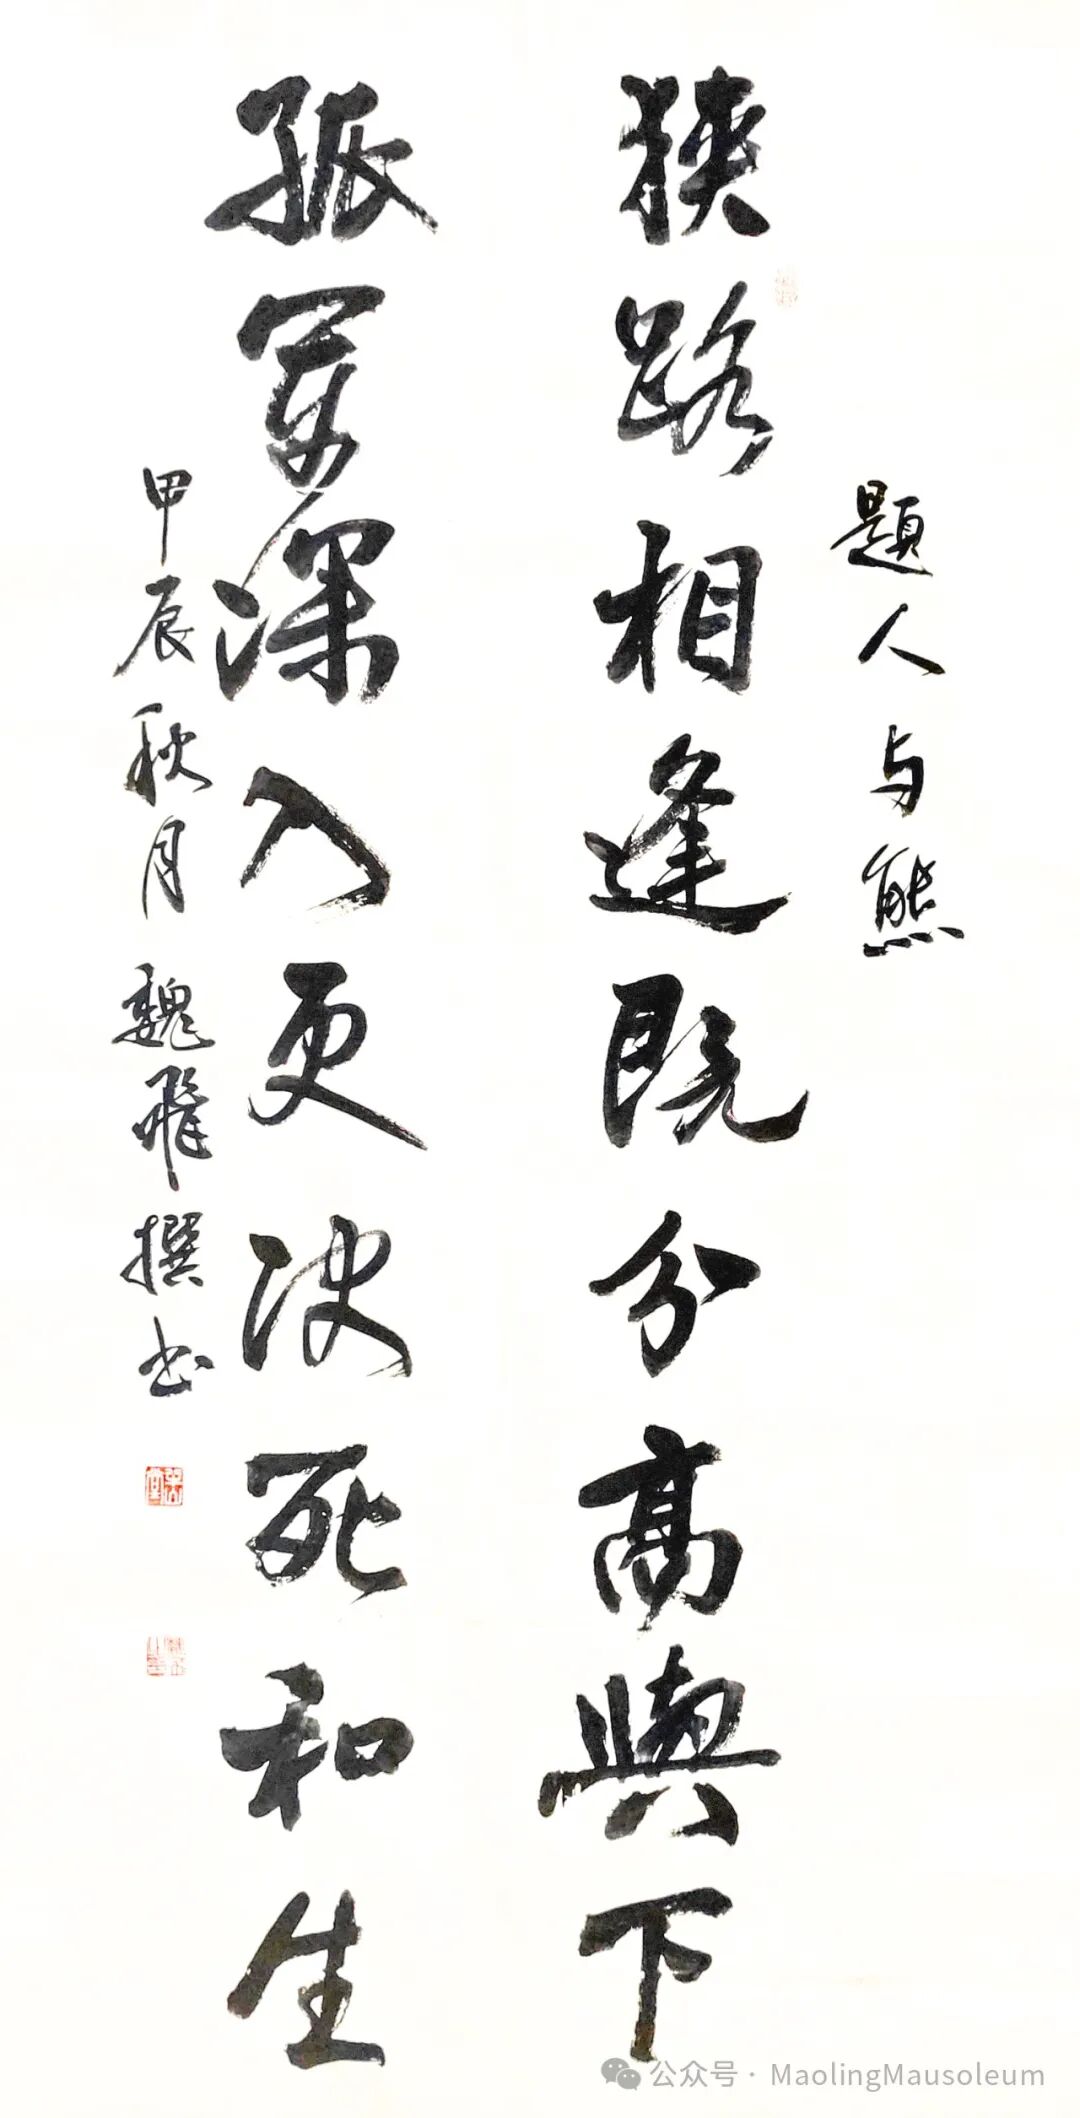 题人与熊
狭路相逢既分高與下
孤军深入更决死和生
甲辰秋月 魏飛撰书
公众号 · MaolingMausoleum